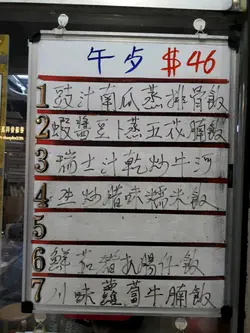 午步 $46
1 豉汁南瓜蒸排骨飯
2 蝦醬豆卜蒸五花腩飯
3 瑞士汁乾炒牛河
4 生炒腊味糯米飯
5
6 鮮茄豬扒腸仔飯
7 川味蘿蔔牛腩飯